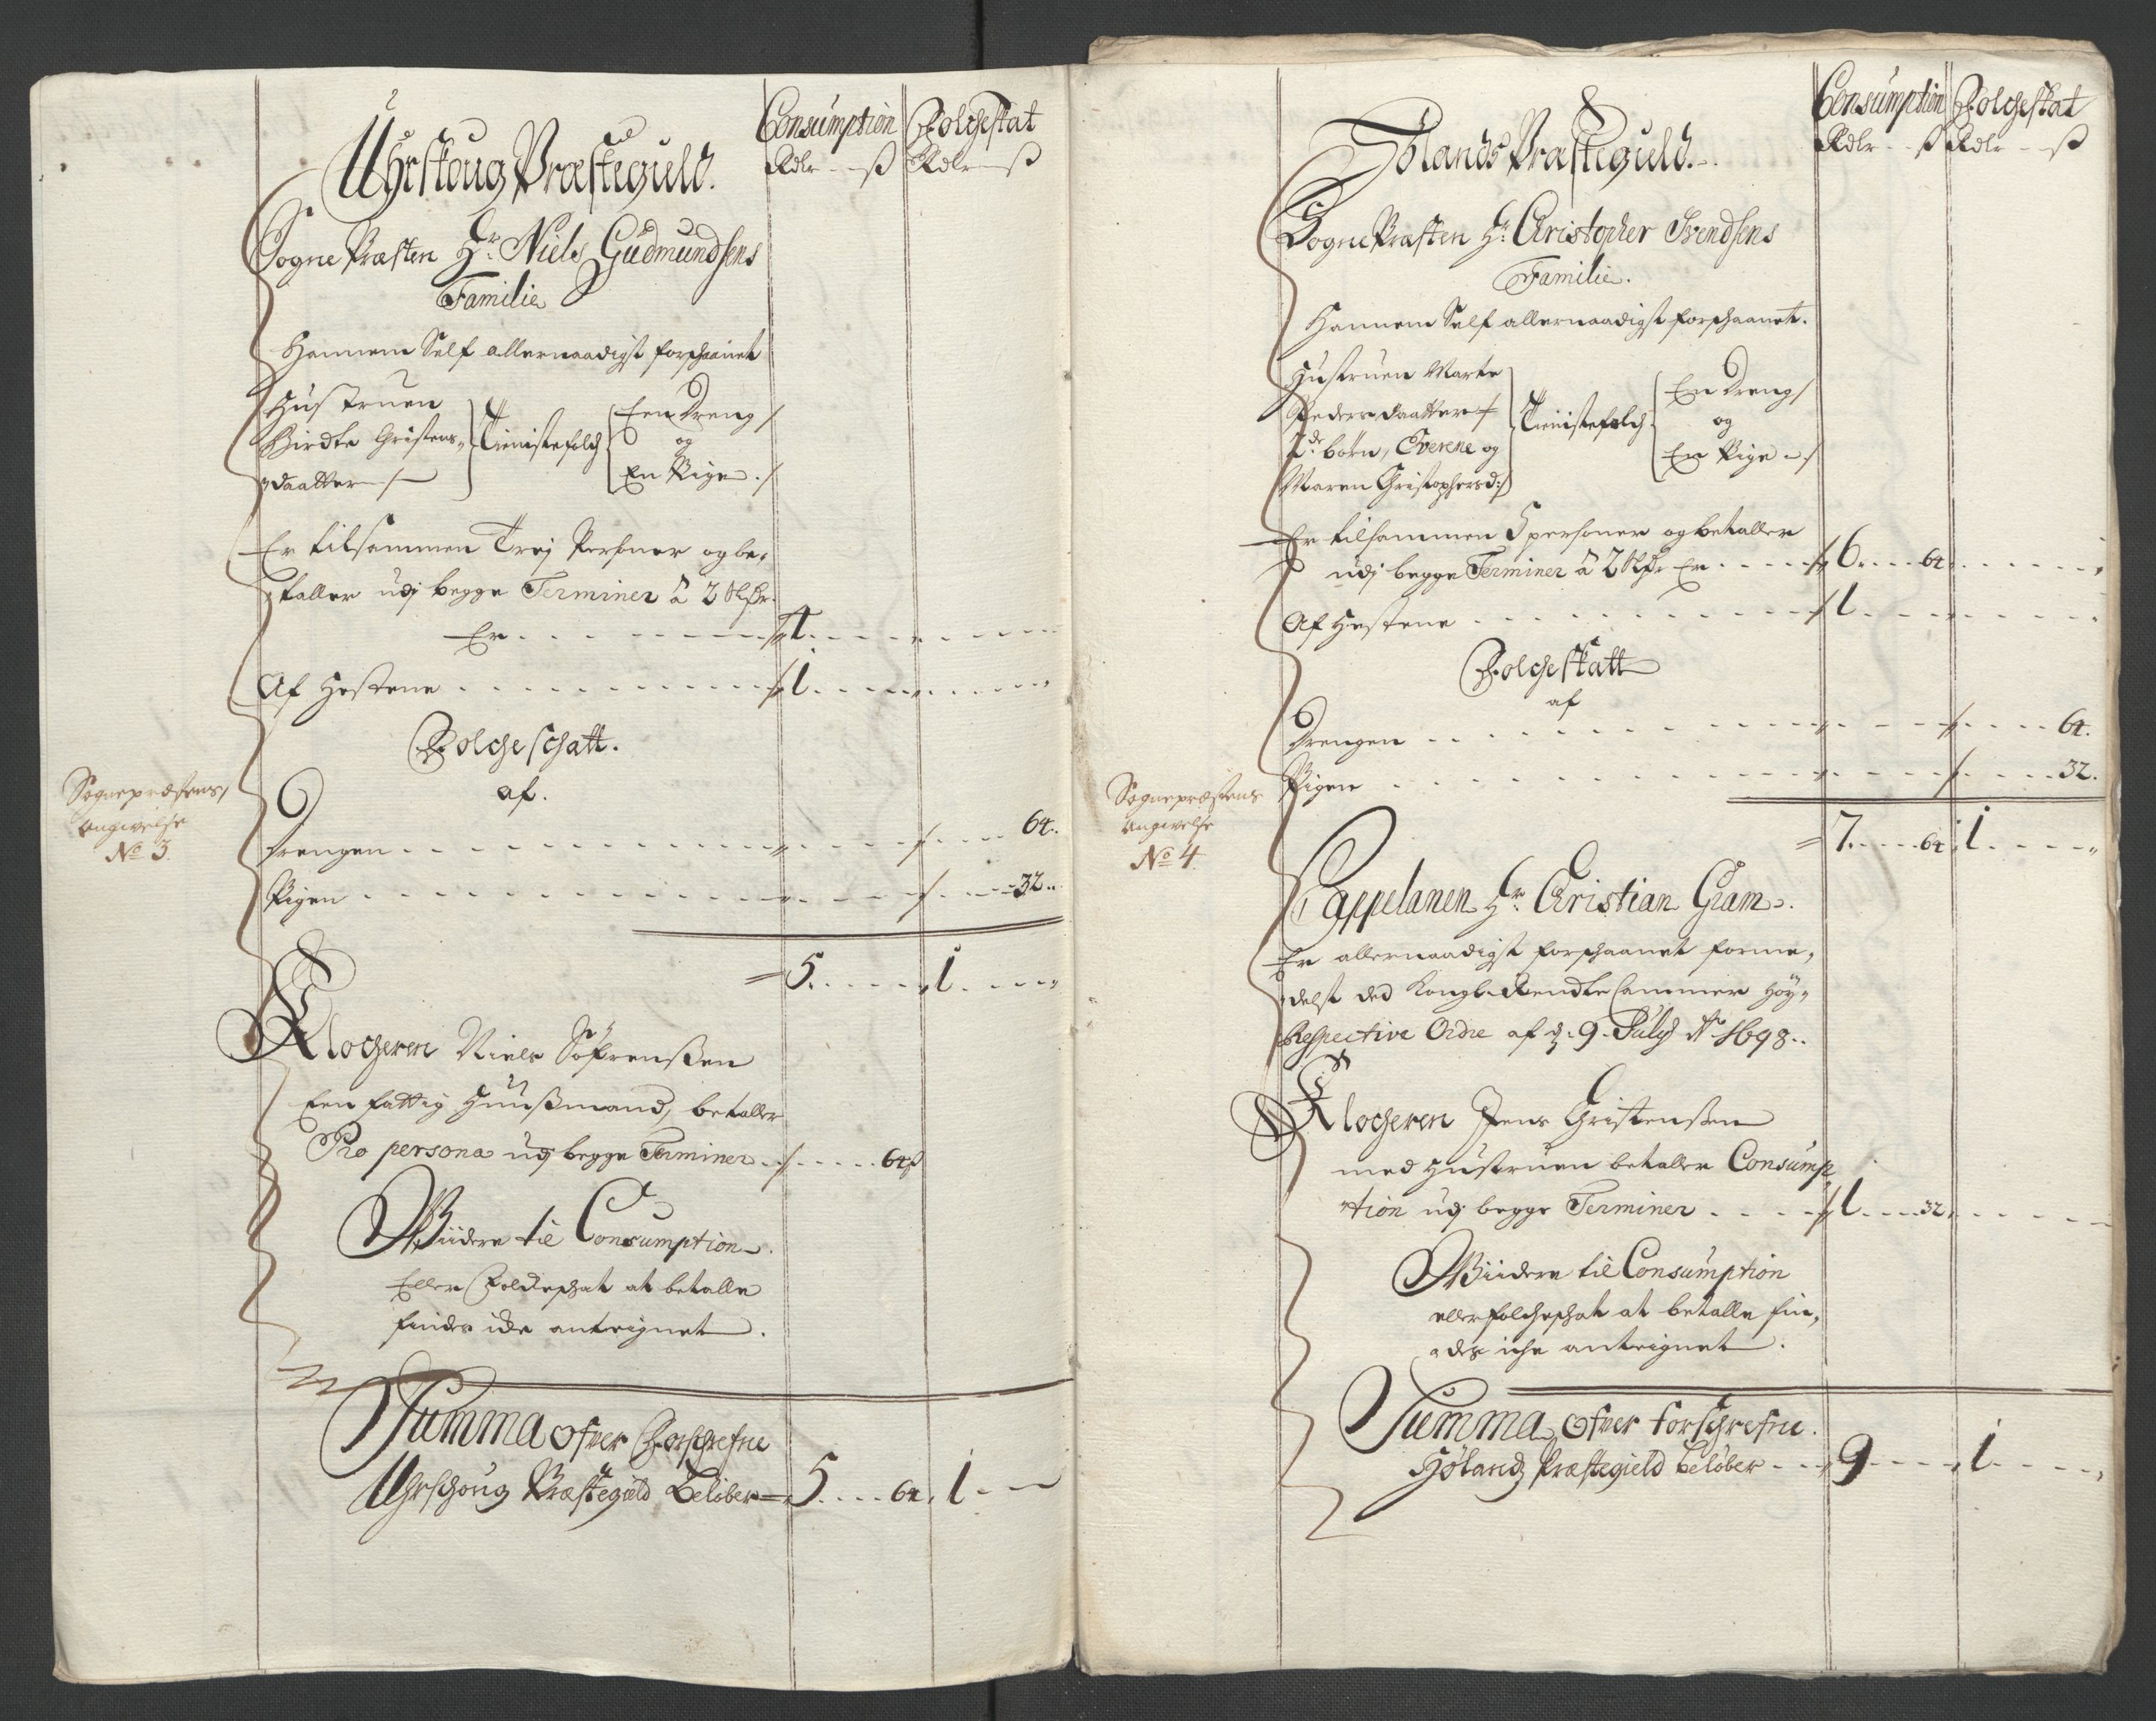 Consumption Folcheskat
Rdlr ß Rdlr ß
Uhrskoug Præsteguld.
Sogne Præsten Hr. Niels Gudmundsens
Familie
Hannem Self allernaadigst forschaanet
Hustruen
Birdte Christens-
daatter
Tienistefolch
Een Dreng
og
En Pige
Er tilsammen Trej Personer og be-
taller udj begge Terminer â 2 Rdr.
Er 4
Af Hestene 1
Folcheschatt.
af.
Drengen 64.
Pigen 32
Sognepræstens
Angivelse
No 3.
5 1
Klocheren Niels Söfrenßen
Een fattig Huußmand, betaller
Pro persona udj begge Terminer 64 ß
Wiidere til Consumption
Eller Folckeschat at betalle
findes icke anteignet.
Summa Ofver Forschrefne
Uhrschoug Præstegield Beløber 5 64 1
Consumption Folcheskat
Rdlr ß Rdlr ß
Hölands Præsteguld.
Sogne Præsten Hr. Christopher Svendsens
Familie.
Hannem Self allernaadigst forschaanet.
Hustruen Marte
Pedersdaatter
2de börn, Everene og
Maren Christophersd:
Tienistefolch
En Dreng
og
En Pige
Er tilsammen 5 personer og betaller
udj begge Terminer â 2 Rdr Er 6 64
Af Hestene 1
Folcheskatt
af
Drengen 64.
Pigen 32.
Sognepræstens
Angivelse
No 4.
7 64 1
Cappelanen Hr. Christian Gram.
Er allernaadigst forschaanet forme-
delst ded Kongl. Rendte Cammer Höy-
Respective Ordre af d. 9. July Ao 1698.
Klocheren Jens Christenßen
med Hustruen betaller Consump
tion udj begge Terminer 1 32
Wiidere til Consumption
eller folcheschat at betalle fin-
des iche anteignet.
Summa Ofver forschrefne.
Hölands Præstegield beløber 9 1